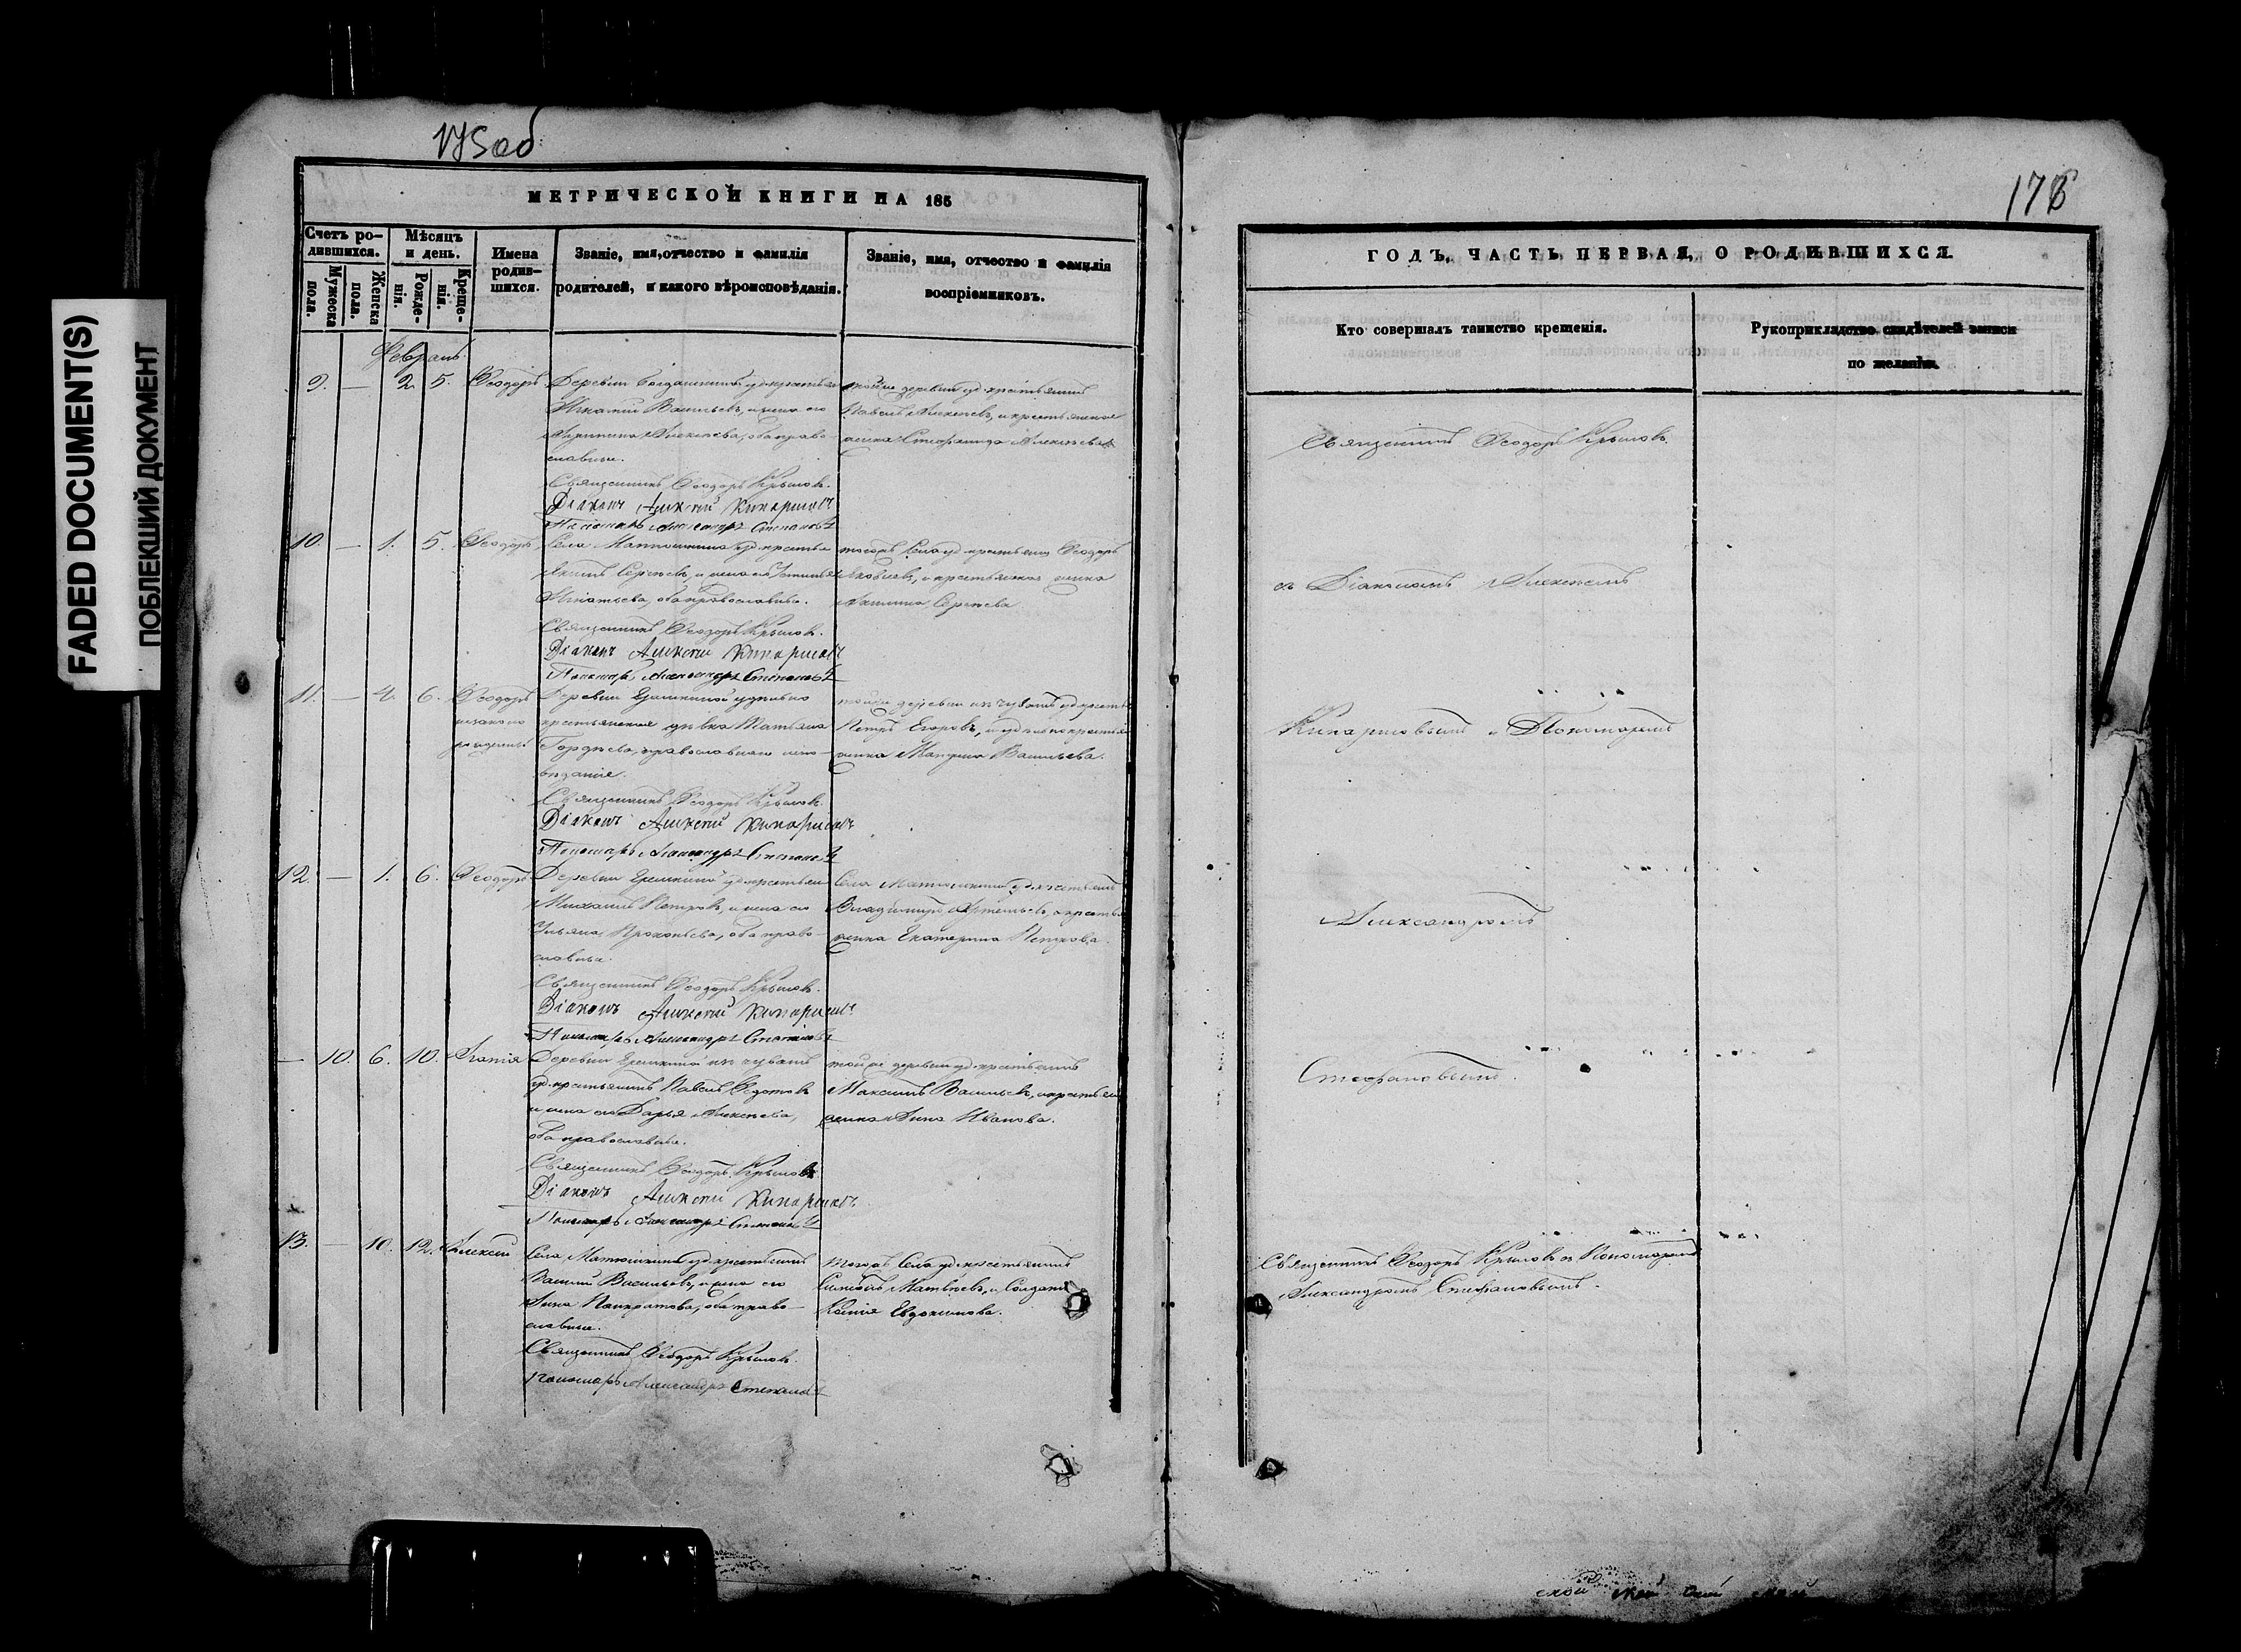 FADED DOCUMENT(S)
ПОБЛЕКШИЙ ДОКУМЕНТ
175об
МЕТРИЧЕСКОЙ КНИГИ НА 185
Счетъ родившихся.
Мужеска пола.
Женска пола.
Мѣсяцъ и день.
Рожденія.
Крещенія.
Имена родившихся.
Званіе, имя, отчество и фамилія
родителей, и какого вѣроисповѣданія.
Званіе, имя, отчество и фамилія
воспріемниковъ.
Февраль
9. — 2. 5. Ѳеодоръ
Деревни уд. крестьян
Игнатій Васильевъ, и жена его
Алексѣева, оба право-
славные.
Священникъ Ѳеодоръ Крыловъ.
Діаконъ Алексій Кипарисовъ
Пономарь Александръ Степановъ
тойже деревни уд. крестьянинъ
Павелъ Алексѣевъ, и крестьянская
Алексѣева
10. — 1. 5. Ѳеодоръ
Села Матюшкина уд. крестья
Сергѣевъ, и жена его Устинья
Игнатьева, оба православные.
Священникъ Ѳеодоръ Крыловъ.
Діаконъ Алексій Кипарисовъ
Пономарь Александръ Степановъ
тогожъ Села уд. крестьянинъ Ѳеодоръ
Яковлевъ, и крестьянская
Акилина Сергѣева
11. — 4. 6. Ѳеодоръ
незаконо
рожденный
Деревни удѣльно
крестьянская дѣвка Татьяна
Гордѣева, православнаго испо-
вѣданія.
Священникъ Ѳеодоръ Крыловъ.
Діаконъ Алексій Кипарисовъ
Пономарь Александръ Степановъ
тойже деревни изъ чувашъ уд. крест
Петръ Егоровъ, и удѣльно крестья
Васильева.
12. — 1. 6. Ѳеодоръ
Деревни уд. крестьян
Михаилъ Петровъ, и жена его
Ульяна Прокопьева, оба право-
славные.
Священникъ Ѳеодоръ Крыловъ.
Діаконъ Алексій Кипарисовъ
Пономарь Александръ Степановъ
Села Матюшкина уд. крестьянинъ
Владиміръ Артемьевъ, и крестья
Екатерина Петрова.
— 10. 6. 10. Агапія
Деревни изъ чувашъ
уд. крестьянинъ Павелъ Ѳедотовъ
и жена его Дарья Алексѣева,
оба православные.
Священникъ Ѳеодоръ Крыловъ
Діаконъ Алексій Кипарисовъ
Пономарь Александръ Степановъ
тойже деревни уд. крестьянинъ
Максимъ Васильевъ, и крестьян
Анна Иванова.
13. — 10. 12. Алексій
Села Матюшкина уд. крестьянинъ
Василій Васильевъ, и жена его
Анна Панкратова, оба право-
славные.
Священникъ Ѳеодоръ Крыловъ.
Пономарь Александръ Степановъ
тогожъ Села уд. крестьянинъ
Матвѣевъ, и Солдатк
Ксенія Евдокимова.
176
ГОДЪ, ЧАСТЬ ПЕРВАЯ, О РОДИВШИХСЯ.
Кто совершалъ таинство крещенія.
Рукоприкладство свидѣтелей записи
по желанію.
Священникъ Ѳеодоръ Крыловъ
съ Діакономъ Алексѣемъ
Кипарисовымъ и Пономаремъ
Александромъ
Стефановымъ.
Священникъ Ѳеодоръ Крыловъ съ Пономаремъ
Александромъ Стефановымъ.